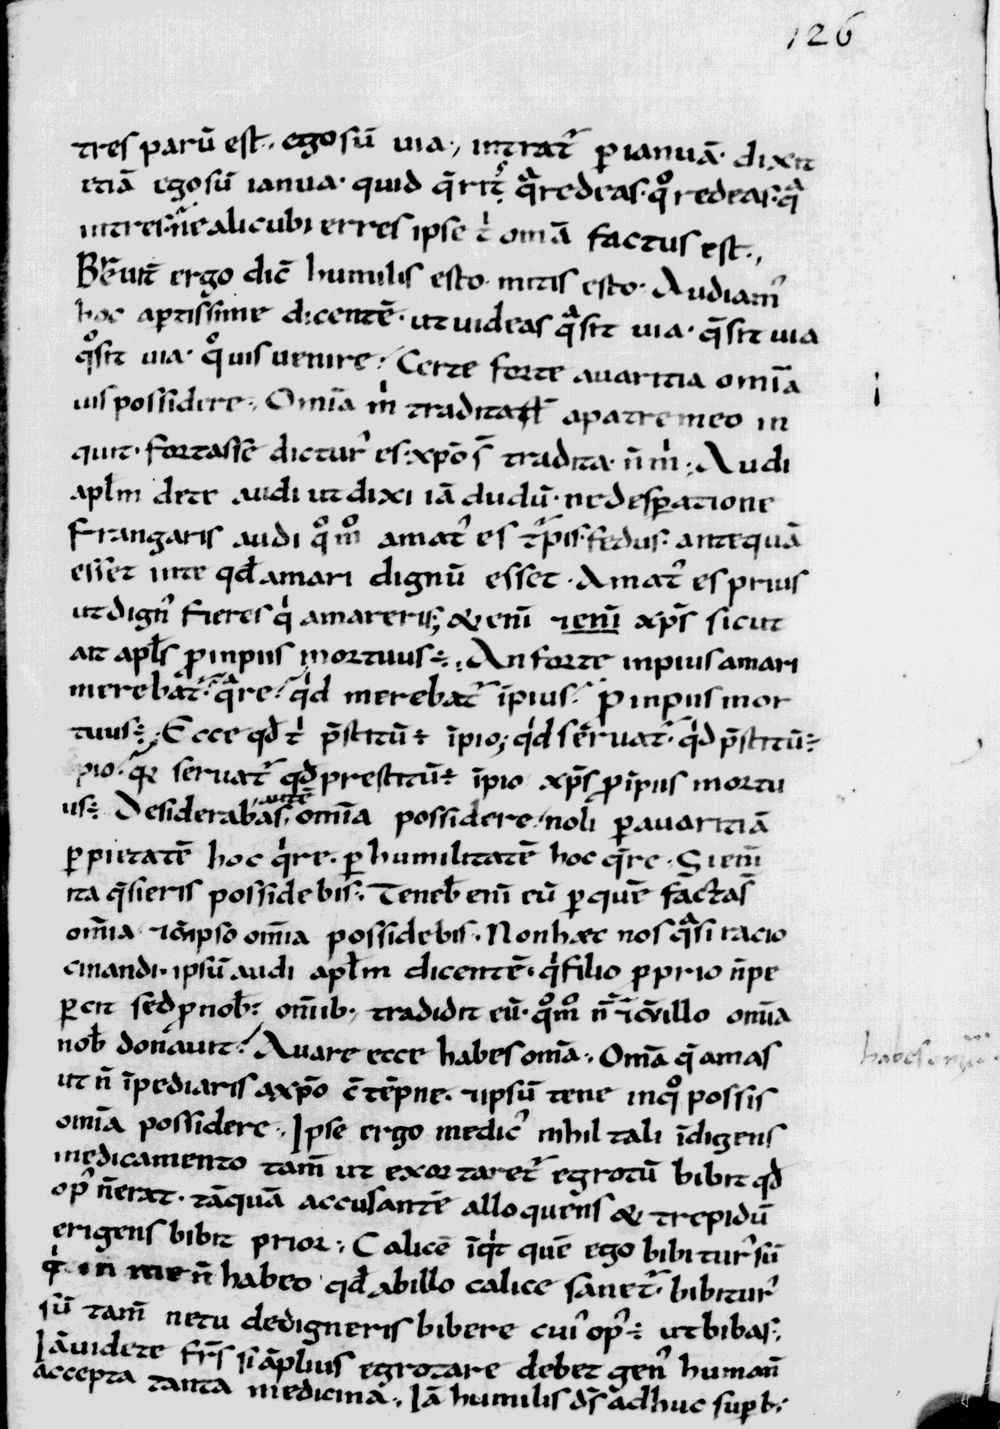 126
tres parū est. ego sū uia., intrat᷒ p ianuā. dixit
etiā ego sū ianua. quid q̄rit᷒ qͣ redeas. qͦ redeas. qͣ
intres. ne alicubi erres ipse tͥ om̄ia factus est.,
Breuit̄ ergo dic̄ humilis esto. mitis esto. Audiam᷒
hoc aptissime dicentē. ut uideas qͣ sit uia. q̄ sit uia
qͦ sit uia. qͦ uis uenire. Certe forte auaritia om̄ia
uis possidere., Om̄ia mͥ tradita st̄ a patre meo in
quit. fortasse dictur᷒ es. xp̄o s̄t tradita. n̄ mͥ., Audi
apl̄m de te audi ut dixi iā dudū. ne desperatione
frangaris audi qͦm̊ amat᷒ es turpis. fedus. antequā
esset in te qd̄ amari dignū esset. Amat᷒ es prius
ut dign᷒ fieres qͥ amareris; & eni̅ ⁊ eni̅ xp̄s sicut
ait apl̄s p inpiis mortuus÷., An forte inpius amari
merebat᷒. qͣre. qͥd merebat᷒ īpius. P inpiis mor
tuus÷., Ecce qd̄ tͥ p̄stitū÷ īpio; qͥd seruat᷒. qͥd p̄stitū÷
īpio. qͥ seruat᷒ qd̄ prestitū÷ īpio xp̄s p īpiis mortu
us÷. Desiderabas autē om̄ia possidere. noli p auaritiā
p pietatē hoc qͥre. p humilitatē hoc qͥre. Si eni̅
ita q̄sieris possidebis. Teneb̄ eni̅ eū p quē facta s̄t
om̄ia ⁊ cū ipso om̄ia possidebis. Non hæc nos qͣsi racio
cinandi. ipsū audi apl̄m dicentē. qͥ filio pprio n̄ pe
percit sed p nob̄. om̄ib. tradidit eū. qͦm̊ n̄ ⁊ cū illo om̄ia
nob̄ donauit. Auare ecce habes om̄ia., Om̄ia q̄ amas
ut n̄ īpediaris a xp̄o c̄tēpne. ⁊ ipsū tene in qͦ possis
om̄ia possidere., Ipse ergo medic᷒ nihil tali īdigens
medicamento tam̄ ut exortaret᷒ egrotū bibit qd̄
op᷒ n̄ erat. tāquā accusantē alloquens & trepidū
erigens bibit prior., Calicē īqͥt quē ego bibitur᷒ sū
qͥ in me n̄ habeo qd̄ ab illo calice sanet᷒. bibitur᷒
sū tam̄ ne tu dedigneris bibere cui᷒ op᷒÷ ut bibas.,
Iā uidete fr̄s si āplius egrotare debet gen᷒ humanū
accepta tanta medicina., Iā humilis ds̄ adhuc superb.
habes om̄ia